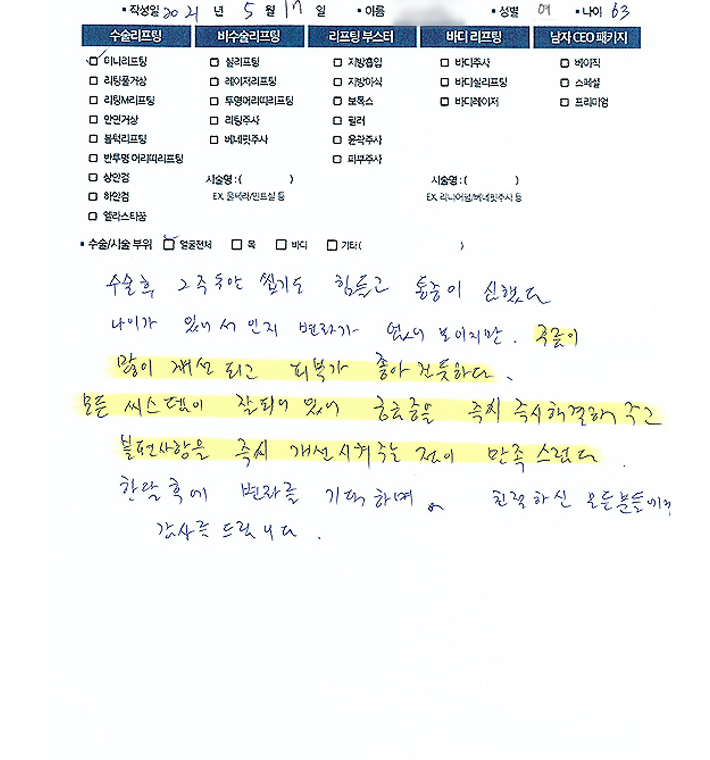 ▪ 작성일 2021 년 5 월 17 일 ▪ 이름 ▪ 성별 여 ▪ 나이 63
수술리프팅 비수술리프팅 리프팅 부스터 바디 리프팅 남자 CEO 패키지
미니리프팅 실리프팅 지방흡입 바디주사 베이직
리팅풀거상 레이저리프팅 지방이식 바디실리프팅 스페셜
리팅M리프팅 투명어리띠리프팅 보톡스 바디레이저 프리미엄
안면거상 리팅주사 필러
볼턱리프팅 베네핏주사 윤곽주사
반투명 어리띠리프팅 피부주사
상안검 시술명 : ( ) 시술명 : ( )
하안검 EX. 울쎄라/민트실 등 EX. 리니어펌/베네핏주사 등
엘라스티꿈
▪ 수술/시술 부위 얼굴전체 목 바디 기타( )
수술후 2주동안 씹기도 힘들고 통증이 심했다
나이가 있어서 인지 변화가 없어 보이지만. 주름이
많이 개선 되고 피부가 좋아진듯하다.
모든 씨스템이 잘되어 있어 궁금증을 즉시 즉시해결해 주고
불편사항을 즉시 개선시켜주는 점이 만족 스럽다.
한달 후에 변화를 기대하며. 친절하신 모든분들에게
감사를 드립니다.